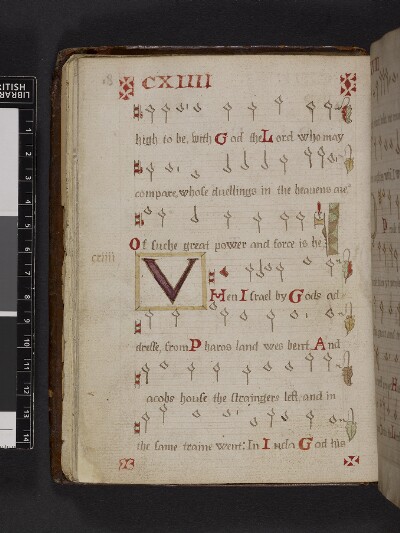 CXIIII
high to be, with God the Lord who may
compare, whose dwellings in the heavens are
Of suche great power and force is he
cxiiii
V
Hen Israel by Gods ad
dresse, from Pharos land wes bent And
acobs house the straingers left, and in
the same traine went: In Iuda God his
26